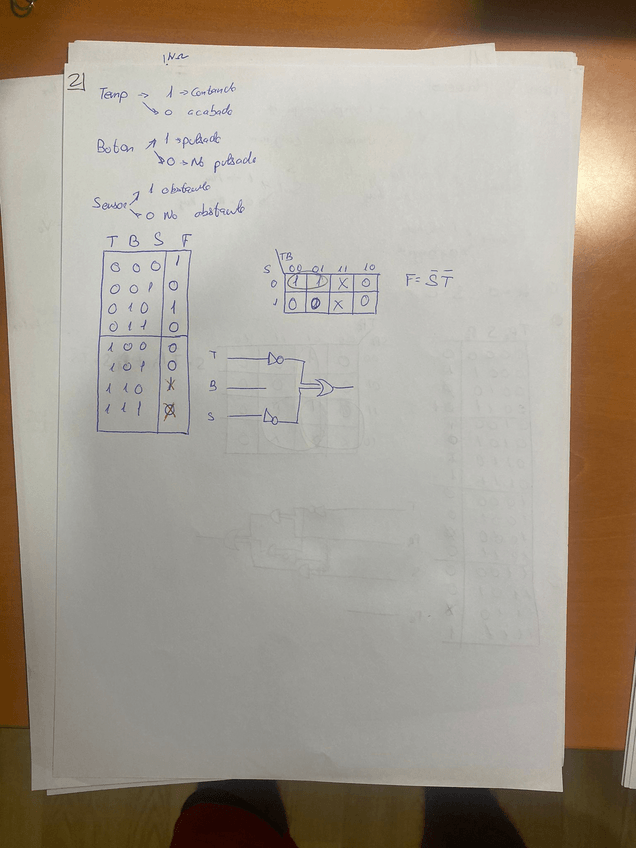 2)
Temp → 1 → Contando
0 acabado
Boton 1 → pulsado
0 → No pulsado
Sensor 1 obstaculo
0 No obstaculo
T B S F
0 0 0 1
0 0 1 0
0 1 0 1
0 1 1 0
1 0 0 0
1 0 1 0
1 1 0 X
1 1 1 X
TB
S 00 01 11 10
0 1 1 X 0
1 0 0 X 0
F = S̅ T̅
T
B
S